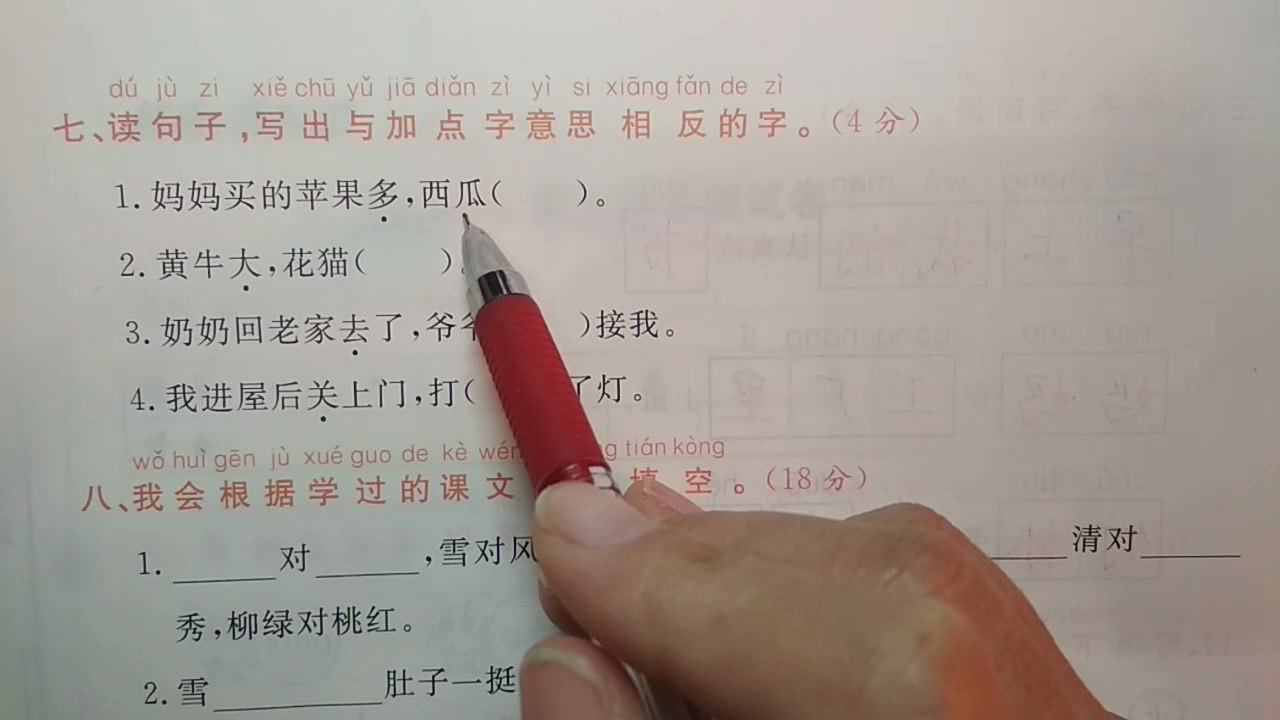 dú jù zi xiě chū yǔ jiā diǎn zì yì si xiāng fǎn de zì
七、读句子,写出与加点字意思相反的字。(4分)
1. 妈妈买的苹果多,西瓜( )。
2. 黄牛大,花猫( )。
3. 奶奶回老家去了,爷 )接我。
4. 我进屋后关上门,打( 了灯。
wǒ huì gēn jù xué guo de kè tián kòng
八、我会根据学过的课文 填空。(18分)
1. ______对______,雪对风 ______清对______
秀,柳绿对桃红。
2. 雪__________肚子一挺